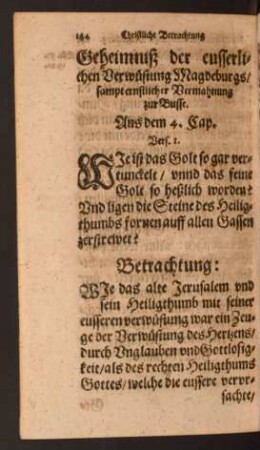 144 Christliche Betrachtung
Geheimnuß der eusserli-
chen Verwüstung Magdeburgs/
sampt ernstlicher Vermahnung
zur Busse.
Aus dem 4. Cap.
Vers. 1.
WJe ist das Golt so gar ver-
tunckelt/ vnnd das feine
Golt so heßlich worden?
Vnd ligen die Steine des Heilig-
thumbs fornen auff allen Gassen
zerstrewet?
Betrachtung:
WJe das alte Jerusalem vnd
sein Heiligthumb mit seiner
eusseren verwüstung war ein Zeu-
ge der Verwüstung des Hertzens/
durch Vnglauben vnd Gottlosig-
keit/ als des rechten Heiligthums
Gottes/ welche die eussere verur-
sachte/